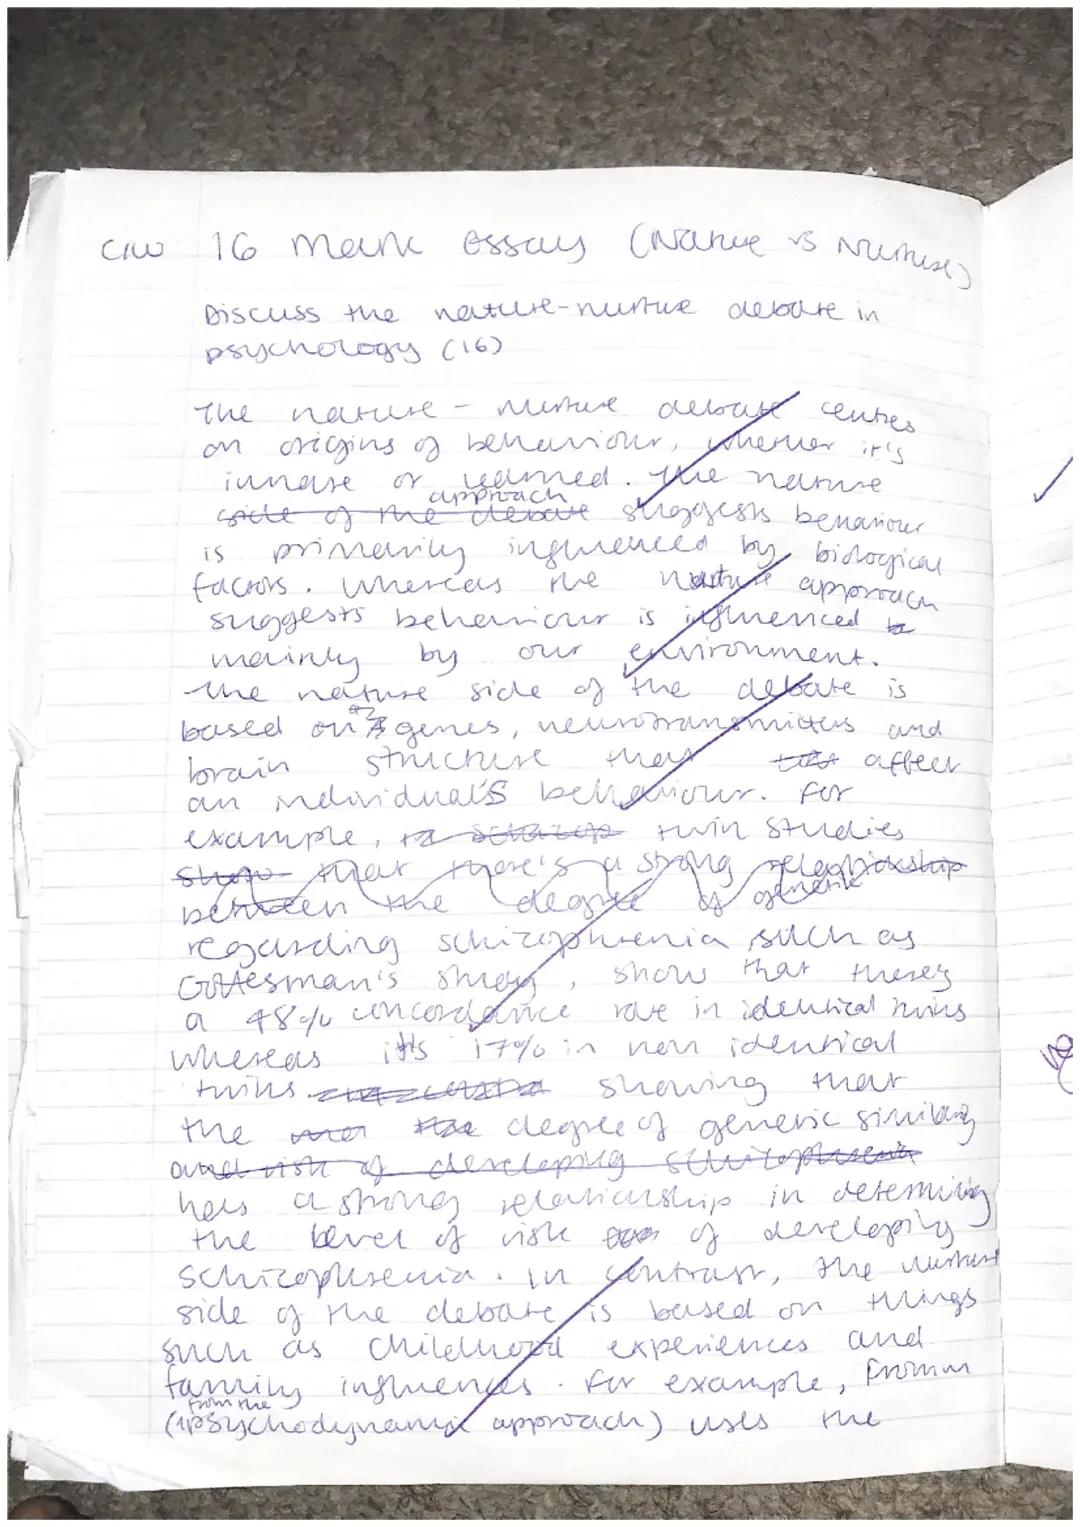 C/W 16 Mark Essay (Nature vs Nurture)
Discuss the nature-nurture debate in
psychology (16)
The nature - nurture debate centres
on origins of behaviour, whether it's
innate or learned. The nature
approach
side of the debate suggests behaviour
is primarily influenced by biological
factors. Whereas the nurture approach
suggests behaviour is influenced
mainly by our environment.
The nature side of the debate is
based on genes, neurotransmitters and
brain structure that affect
an individual's behaviour. For
example, twin studies
show that there's a strong relationship
between the degree of genetic
regarding schizophrenia, such as
Gottesman's study, shows that there's
a 48% concordance rate in identical twins
whereas it's 17% in non identical
twins. showing that
the degree of genetic similarity
and risk of developing schizophrenia
has a strong relationship in determining
the level of risk of developing
schizophrenia. In contrast, the nurture
side of the debate is based on things
such as childhood experiences and
family influences. For example, Fromm
from the
(psychodynamic approach) uses the